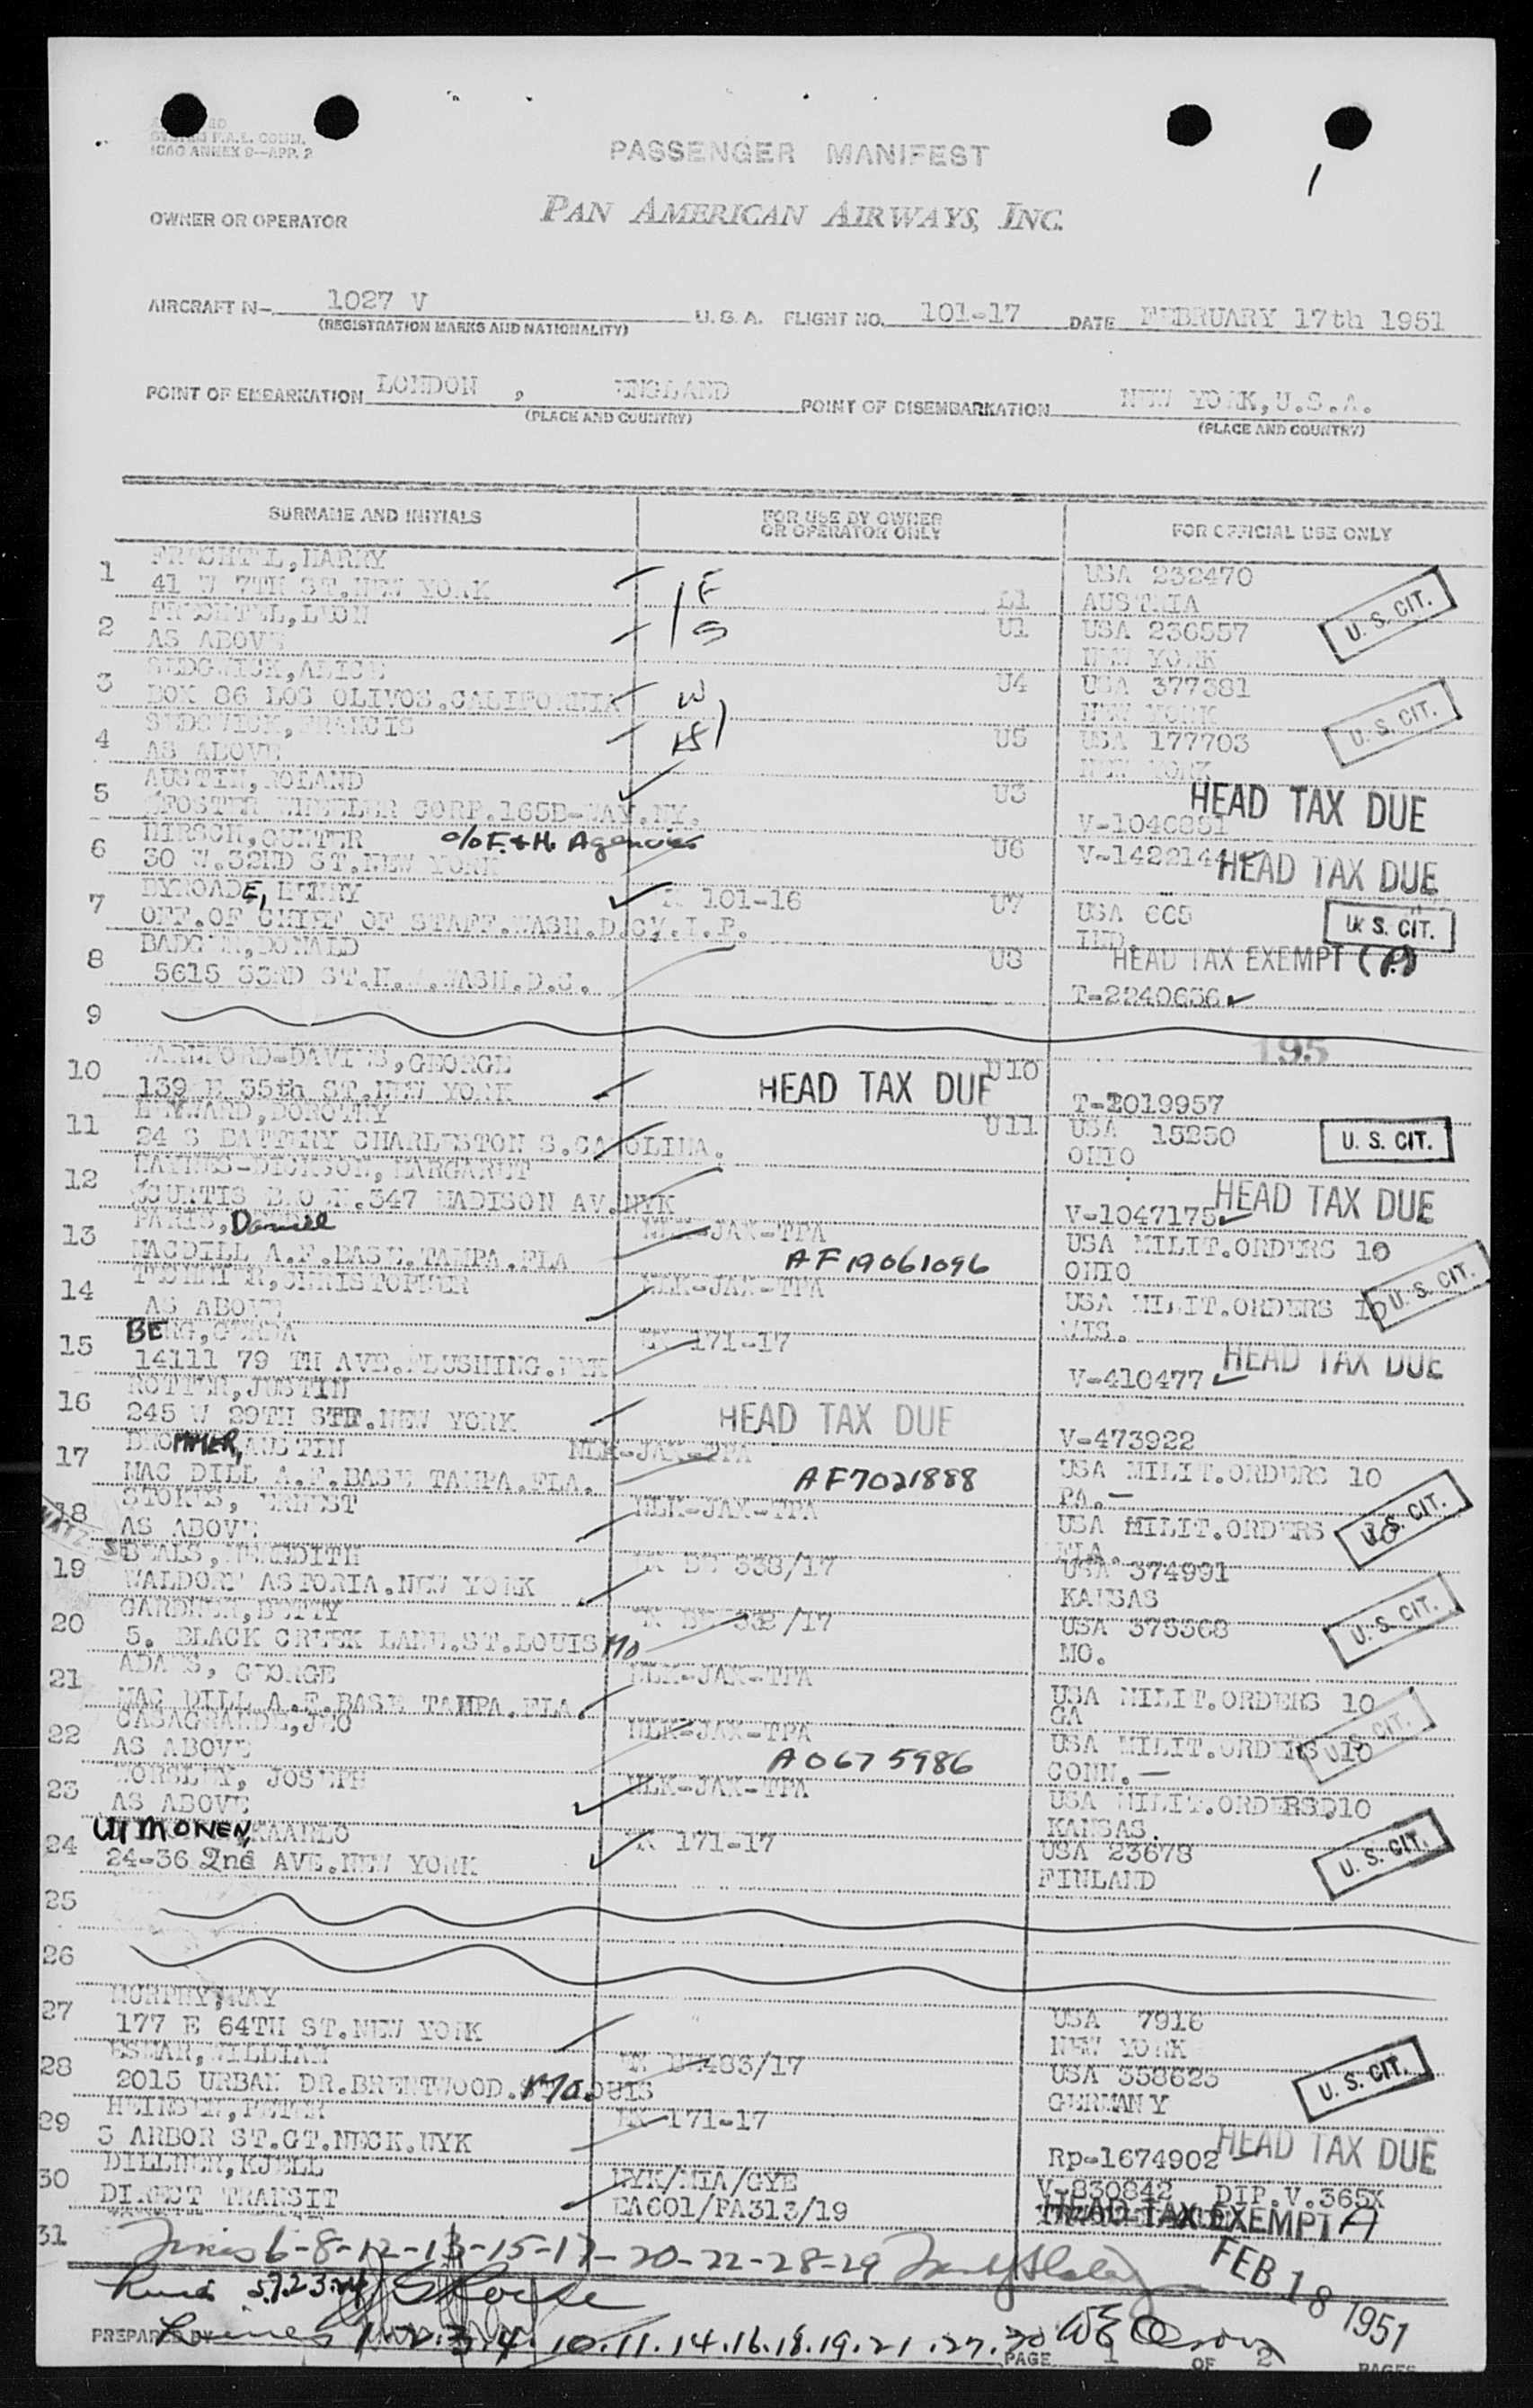 SYSTEM F.A.L. COMM.
ICAO ANNEX 9—APP. 2
PASSENGER MANIFEST
1
OWNER OR OPERATOR PAN AMERICAN AIRWAYS, INC.
AIRCRAFT N- 1027 V U.S.A. FLIGHT NO. 101-17 DATE FEBRUARY 17th 1951
(REGISTRATION MARKS AND NATIONALITY)
POINT OF EMBARKATION LONDON , ENGLAND POINT OF DISEMBARKATION NEW YORK, U.S.A.
(PLACE AND COUNTRY) (PLACE AND COUNTRY)
SURNAME AND INITIALS FOR USE BY OWNER OR OPERATOR ONLY FOR OFFICIAL USE ONLY
1 HARRY USA 232470
41 W 7TH ST.NEW YORK F AUSTRIA
2 U1 USA 236557 U.S. CIT.
AS ABOVE S NEW YORK
3 SEDGWICK, ALICE U4 USA 377381
BOX 86 LOS OLIVOS.CALIFORNIA W NEW YORK
4 SEDGWICK, FRANCIS U5 USA 177703 U.S. CIT.
AS ABOVE H NEW YORK
5 AUSTIN, ROLAND U3 HEAD TAX DUE
FOSTER WHEELER CORP.165B-WAY.NY. V-1046881
6 HIRSCH, GUNTER c/o F. & H. Agencies U6 V-1422144 HEAD TAX DUE
30 W.32ND ST.NEW YORK
7 BYROADE, HENRY 101-16 U7 USA 665 U.S. CIT.
OFF.OF CHIEF OF STAFF.WASH.D.C. IND.
8 DONALD U8 HEAD TAX EXEMPT
5615 33RD ST.N.W.WASH.D.C. T-2240656
9 195
10 GEORGE U10
139 E 35th ST.NEW YORK HEAD TAX DUE T-2019957
11 DOROTHY U11 USA 15250 U. S. CIT.
24 S BATTERY CHARLESTON S.CAROLINA. OHIO
12 MARGARET HEAD TAX DUE
CURTIS BROWN.347 MADISON AV.NYK V-1047175
13 PARIS, Daniel NLK-JAX-TPA USA MILIT.ORDERS 10
MACDILL A.F.BASE.TAMPA.FLA AF19061096 OHIO
14 CHRISTOPHER NLK-JAX-TPA USA MILIT.ORDERS 10 U.S. CIT.
AS ABOVE WIS.
15 BERG, GERDA 171-17 HEAD TAX DUE
14111 79 TH AVE.FLUSHING.NYK V-410477
16 JUSTIN
245 W 29TH STR.NEW YORK HEAD TAX DUE V-473922
17 BROMMER, AUSTIN NLK-JAX-TPA USA MILIT.ORDERS 10
MAC DILL A.F.BASE TAMPA.FLA. AF7021888 PA.—
18 STOKES, ERNEST NLK-JAX-TPA USA MILIT.ORDERS 10 U.S. CIT.
AS ABOVE FLA.
19 BEALS, MEREDITH 338/17 USA 374991
WALDORF ASTORIA.NEW YORK KANSAS
20 GARDNER, BETTY 332/17 USA 375368 U.S. CIT.
5. BLACK CREEK LANE.ST.LOUIS MO MO.
21 ADAMS, GEORGE NLK-JAX-TPA USA MILIT.ORDERS 10
MAC DILL A.F.BASE TAMPA.FLA. GA
22 CASAGRANDE, LEO NLK-JAX-TPA USA MILIT.ORDERS 10 U.S. CIT.
AS ABOVE A0675986 CONN.—
23 WORSLEY, JOSEPH NLK-JAX-TPA USA MILIT.ORDERS 10
AS ABOVE KANSAS.
24 UIMONEN, KAARLO 171-17 USA 23678 U.S. CIT.
24-36 2nd AVE.NEW YORK FINLAND
25
26
27 MURPHY, RAY USA 7916
177 E 64TH ST.NEW YORK NEW YORK
28 ESMAR, WILLIAM 483/17 USA 358623 U.S. CIT.
2015 URBAN DR.BRENTWOOD. Mo. GERMANY
29 HEINSEN, PETER 171-17 HEAD TAX DUE
3 ARBOR ST.GT.NECK.NYK Rp-1674902
30 DILLNER, KJELL NYK/MIA/GYE V-830842 DIP.V.365X
DIRECT TRANSIT EA601/PA313/19 HEAD TAX EXEMPT
31 6-8-12-13-15-17-20-22-28-29
FEB 18 1951
5.7.23.24
PREPARED BY 1.2.3.4.10.11.14.16.18.19.21.27.30
PAGE 1 OF 2 PAGES